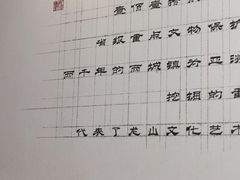 壹佰壹拾
省级重点文物保护
两千年的两城镇
挖掘的
代表了龙山文化艺术